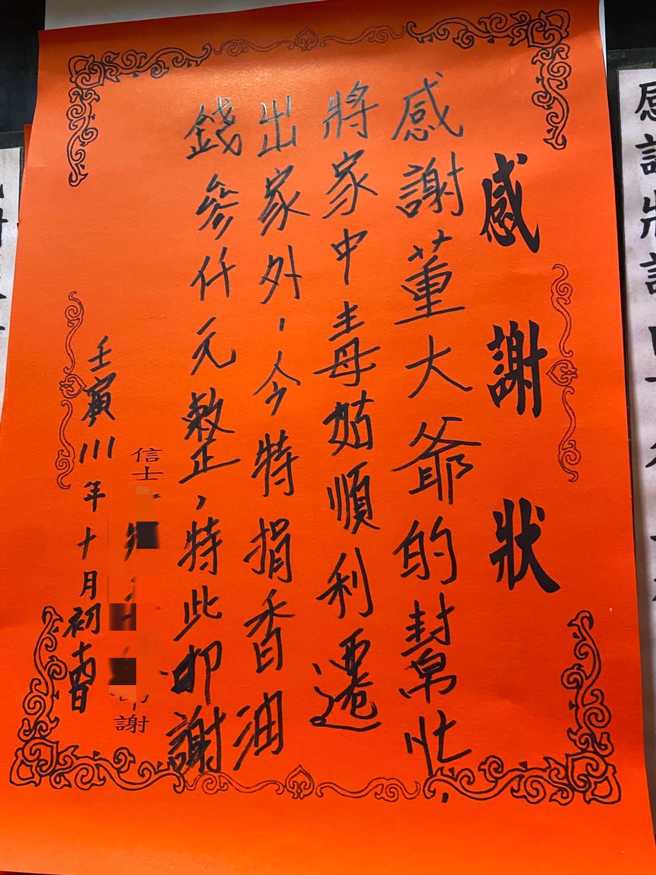 感謝狀
感謝董大爺的幫忙，
將家中毒姑順利遷
出家外，今特捐香油
錢參仟元整，特此叩謝
信士
叩謝
壬寅111年十月初